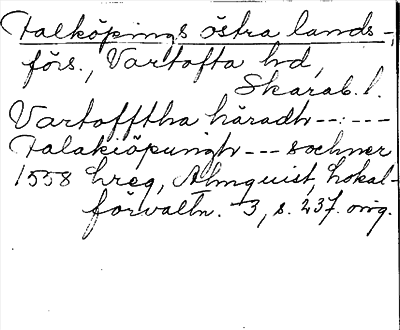 Falköpings östra lands-
förs., Vartofta hd,
Skarab. l.
Vartofftha häradh --:---
Falakiöpungh --- sochner
1558 hreg, Almquist, Lokal-
förvaltn. 3, s. 237. orig.